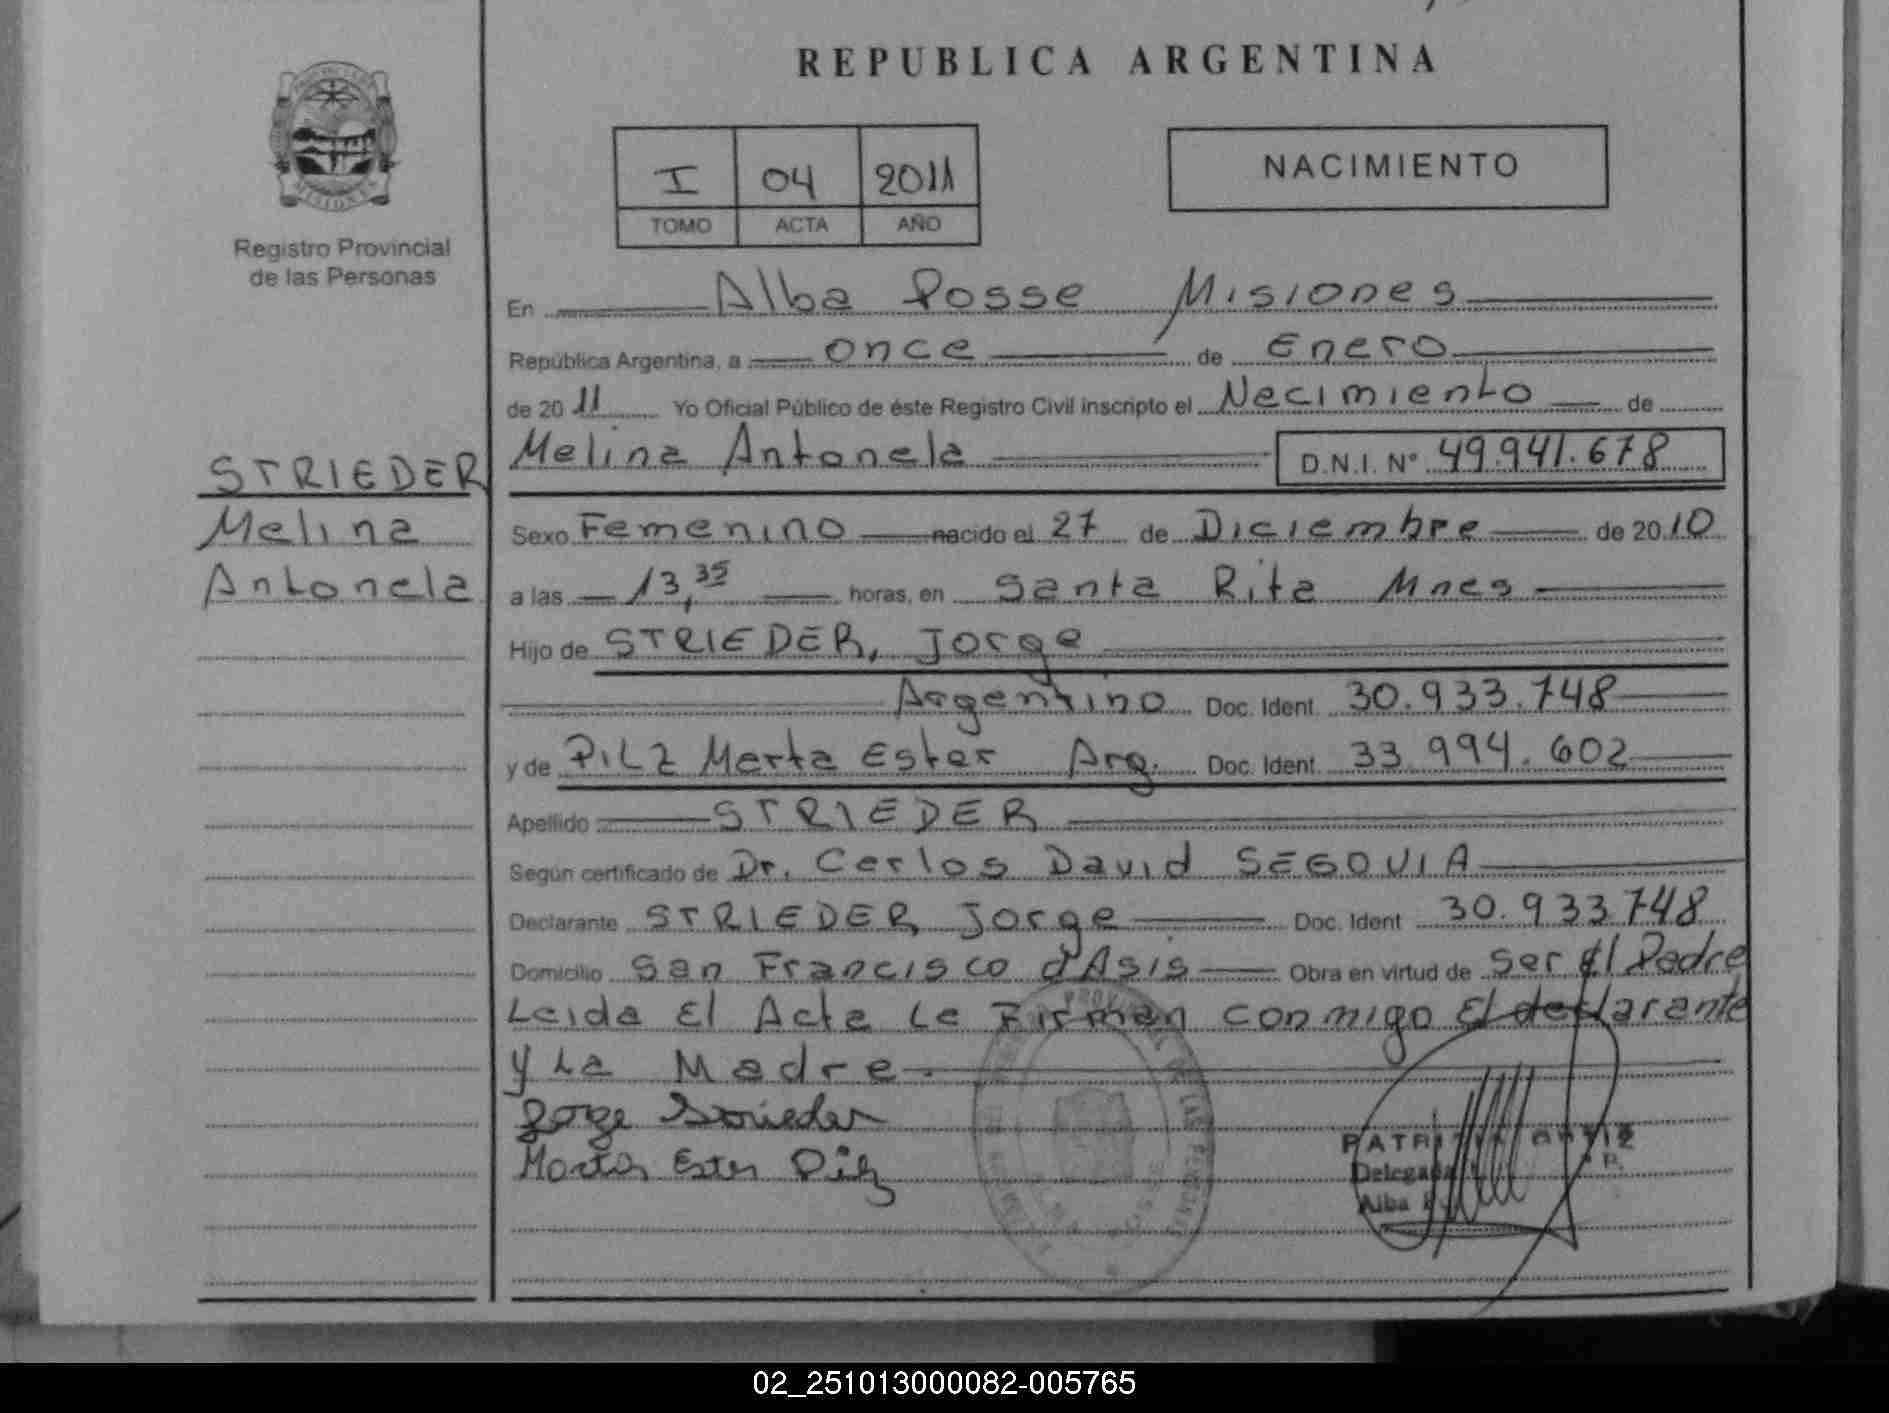 REPUBLICA ARGENTINA
MISIONES
Registro Provincial
de las Personas
I 04 2011
TOMO ACTA AÑO
NACIMIENTO
En Alba Posse Misiones
República Argentina, a once de Enero
de 2011 Yo Oficial Público de éste Registro Civil inscripto el Nacimiento de
Melina Antonela D.N.I. Nº 49.941.678
STRIEDER
Melina
Antonela
Sexo Femenino nacido el 27 de Diciembre de 2010
a las 13,35 horas, en Santa Rita Mnes
Hijo de STRIEDER, Jorge
Argentino Doc. Ident. 30.933.748
y de PILZ Marta Ester Arg. Doc. Ident. 33.994.602
Apellido STRIEDER
Según certificado de Dr. Carlos David SEGOVIA
Declarante STRIEDER Jorge Doc. Ident 30.933.748
Domicilio San Francisco d'Asis Obra en virtud de ser El Padre
Leida El Acta La Firman conmigo El declarante
y La Madre.
Jorge Strieder
Marta Ester Pilz
ALBA POSSE
Delegada
Alba
02_251013000082-005765